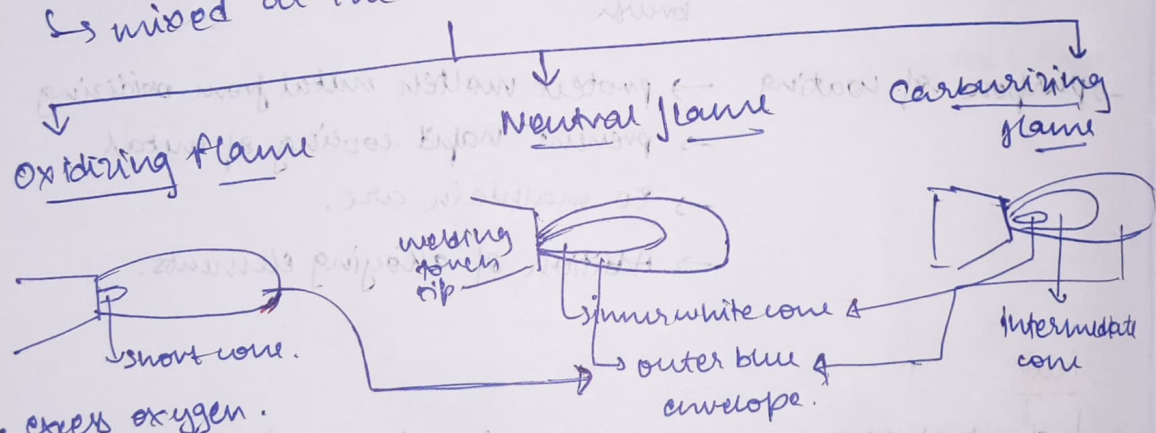 ↳ mixed
Oxidizing flame
Neutral flame
Carburizing
flame
welding
torch
tip
short cone.
inner white cone
outer blue
envelope.
Intermediate
cone
excess oxygen.